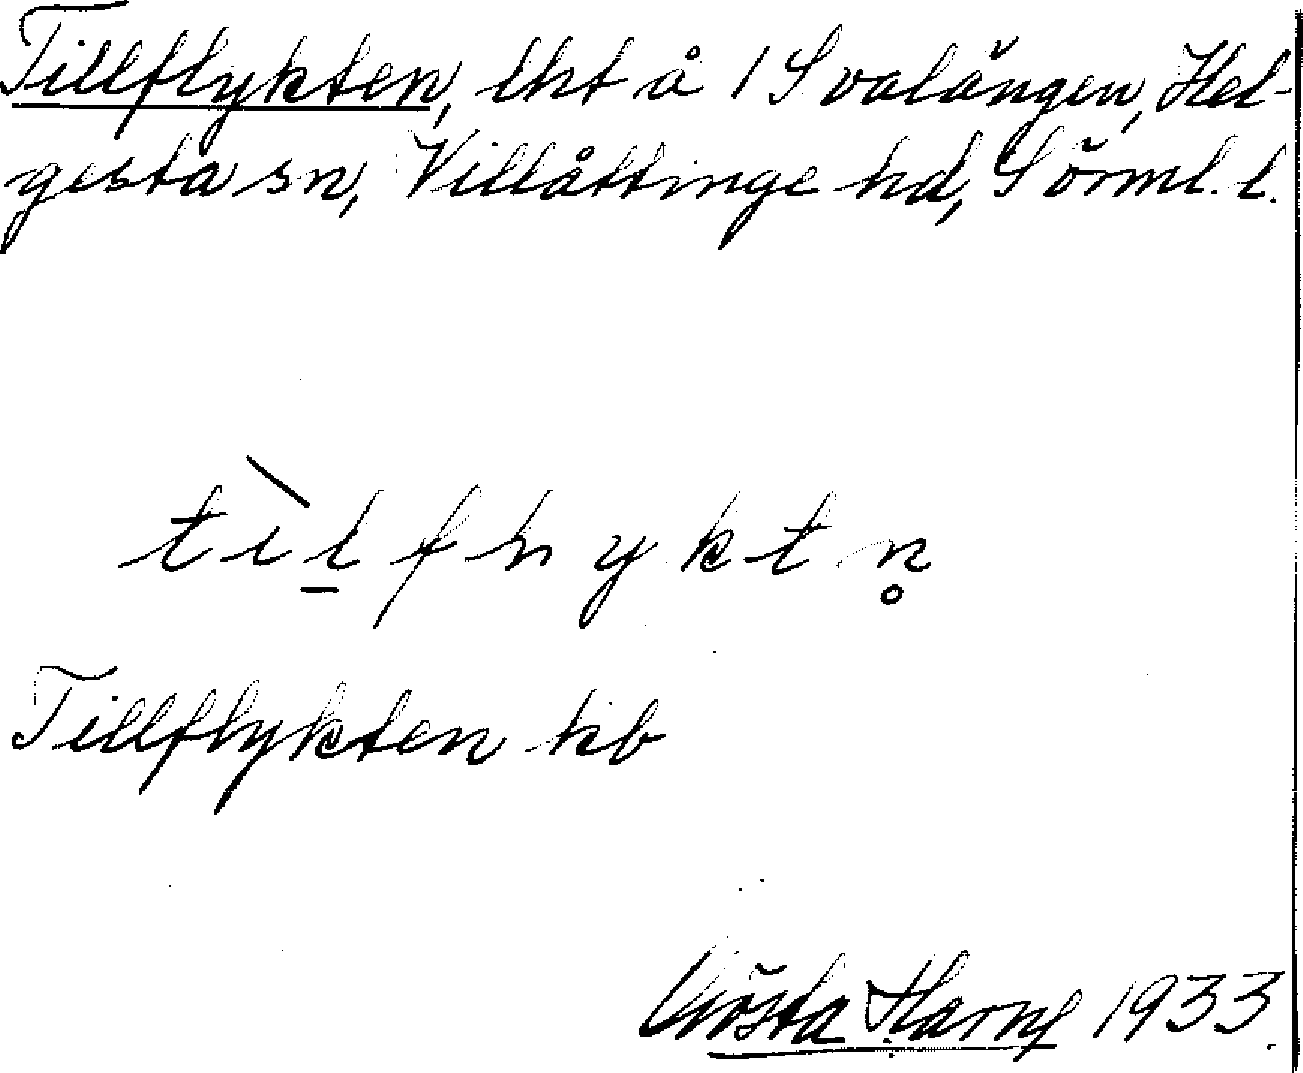 Tillflykten, lht å 1 Svalängen, Hel-
gesta sn, Villåttinge hd, Sörml. l.
tìl̠fhyktn̥
Tillflykten kb
Gösta Harnf 1933.